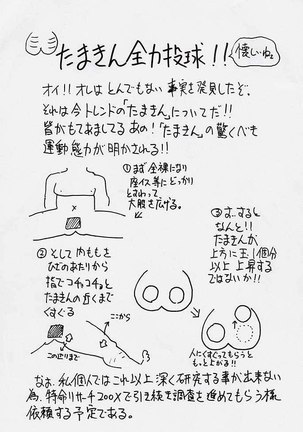 たまきん全力投球!!
懐しいね。
オイ!! オレは とんでもない 事実を発見したぞ。
それは今トレンドの「たまきん」についてだ!!
皆がもてあましてる あの!「たまきん」の驚くべき
運動能力が明かされる!!
①まず全裸になり
座イス等にどっかり
とすわって
大股を広げる。
②そして内ももを
ひざのあたりから
指でコチョコチョと
たまきんの近くまで
くすぐる
ここから
この辺りまで
③するとなんと!!
たまきんが
上方に玉1個分
以上上昇する
ではないか!!
人にくすぐってもらうと
もっと上がる!!
なお、私個人ではこれ以上深く研究する事が出来ない
為、特命リサーチ200Xで引き続き調査を進めてもらう様
依頼する予定である。